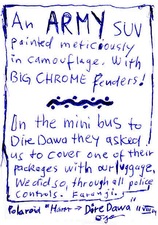 An ARMY SUV
painted meticiously
in camouflage. With
BIG CHROME fenders!
On the mini bus to
Dire Dawa they asked
us to cover one of their
packages with our luggage.
We did so, through all police
controls. Farangis
Polaroid "Harrar → Dire Dawa